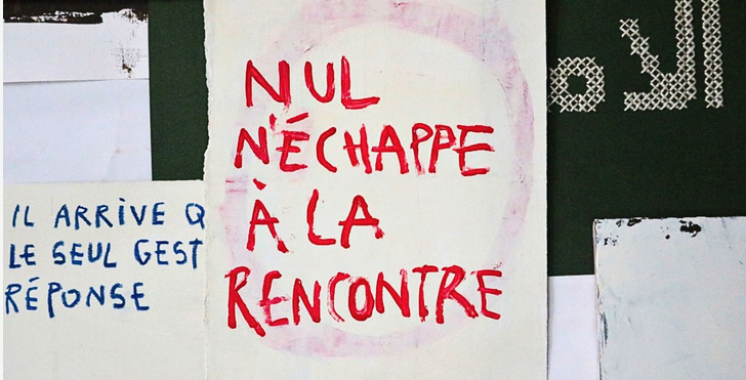 NUL
N'ÉCHAPPE
À LA
RENCONTRE
IL ARRIVE Q
LE SEUL GEST
RÉPONSE